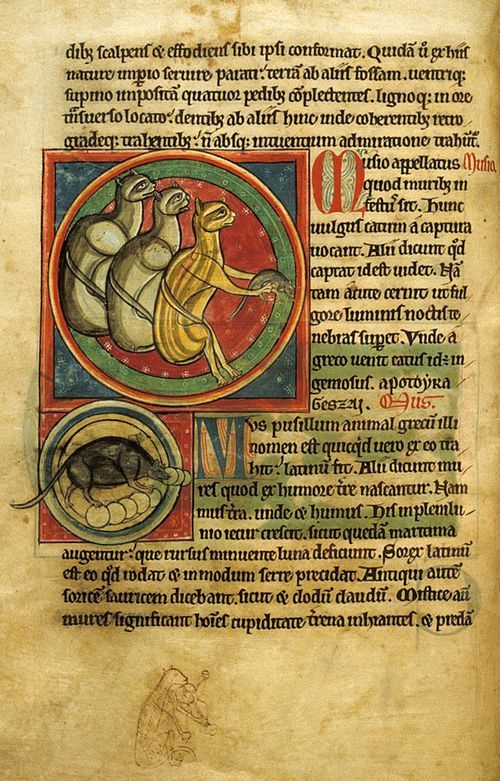 dibꝫ scalpens & effodiens sibi ipsi conformat. Quidā ů ex hiis
nature imp̄io seruire parati. terrā ab aliis fossam. uentriqꝫ
supino impositam quatuor pedibꝫ cōplectentes. lignoqꝫ in ore
tᷓsuerso locato. dentibꝫ ab aliis hinc inde coherentibꝫ retro
gradeqꝫ trahentibꝫ. ñ absqꝫ intuentium admiratione trahūt᷑.
Musio appellatus Musio.
quod muribꝫ in
festus sit. Hunc
uulgus catum a captura
uocant. Alii dicunt qd̓
captat id est uidet. Nā
tam acute cernit ut ful
gore luminis noctis te
nebras superet. Unde a
greco uenit catus id ÷ in
geniosus. apotoyra
geszai. Mus.
Mus pusillum animal grecū illi
nomen est quicqd̓ uero ex eo tra
hit᷑ latinum fit. Alii dicunt mu
res quod ex humore t̄re nascantur. Nam
mus t̄ra. unde & humus. His in plenilu
nio iecur crescit. sicut quedā maritima
augentur. que rursus minuente luna deficiunt. Sorex latinū
est eo qd̓ rodat & in modum serre precidat. Antiqui autē
soricē sauricem dicebant. sicut & clodū claudū. Mistice aū
mures significant hoīes cupiditate t̄rena inhiantes. & predā